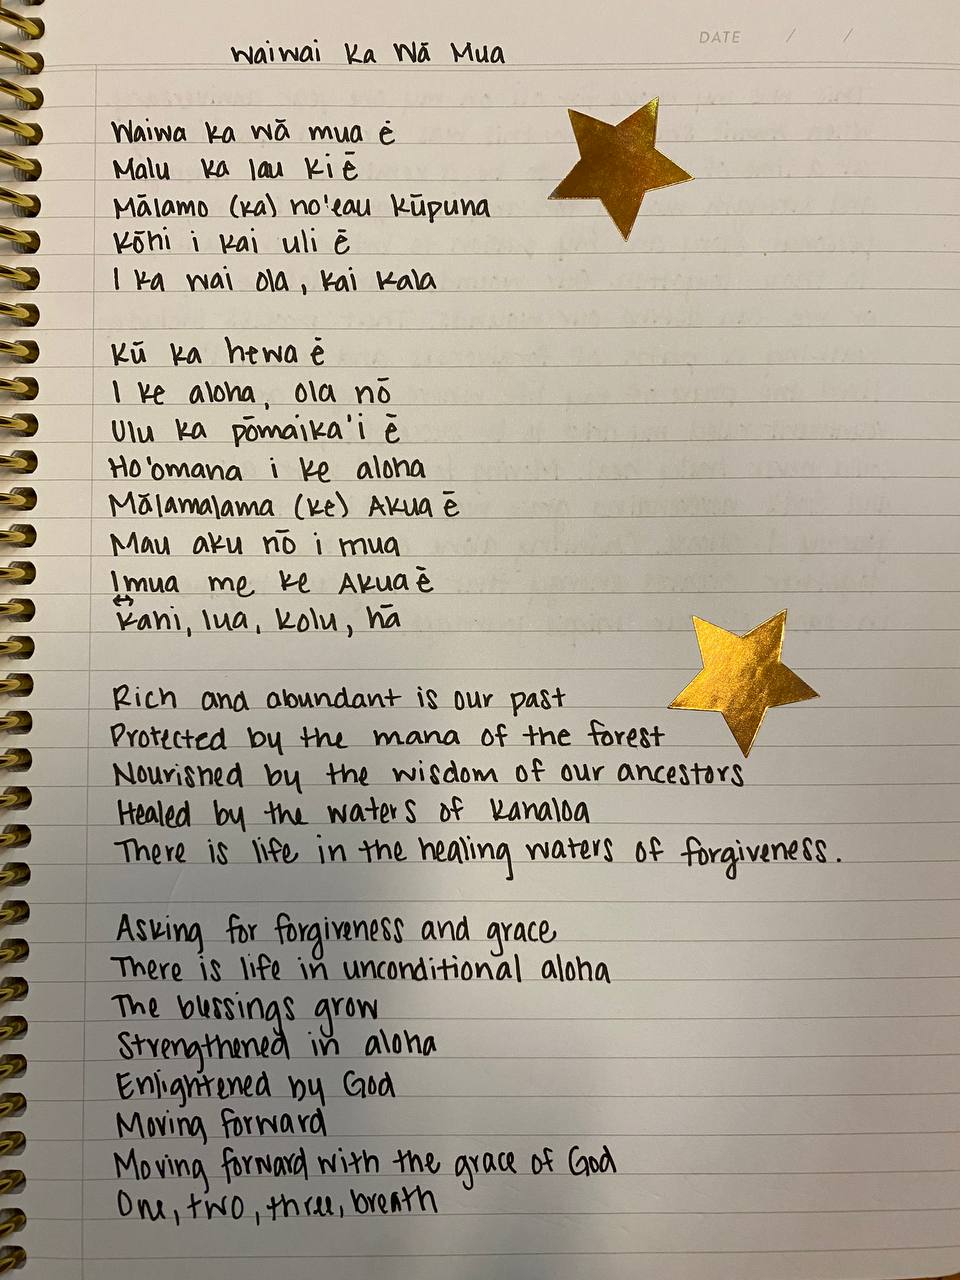 DATE / /
Waiwai Ka Wā Mua
Waiwa ka wā mua ē
Malu ka lau ki ē
Mālamo (ka) no'eau kūpuna
Kōhi i kai uli ē
I ka wai ola, kai kala
Kū ka hewa ē
I ke aloha, ola nō
Ulu ka pōmaika'i ē
Ho'omana i ke aloha
Mālamalama (ke) Akua ē
Mau aku nō i mua
Imua me ke Akua ē
↔
Kahi, lua, kolu, hā
Rich and abundant is our past
Protected by the mana of the forest
Nourished by the wisdom of our ancestors
Healed by the waters of Kanaloa
There is life in the healing waters of forgiveness.
Asking for forgiveness and grace
There is life in unconditional aloha
The blessings grow
Strengthened in aloha
Enlightened by God
Moving forward
Moving forward with the grace of God
One, two, three, breath